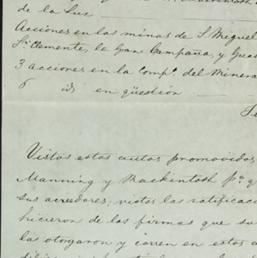 de la Luz
Acciones en las minas de S. Miguel
Sn. Clemente, la Gran Campaña, y Gua
3 acciones en la Compa. del Minera
6 id. en qüestión
Vistos estos autos promovidos
Manning y Mackintosh pa. q
sus acredores, vistos las ratificac
hicieron de las firmas que su
las otorgaron y corren en estos a